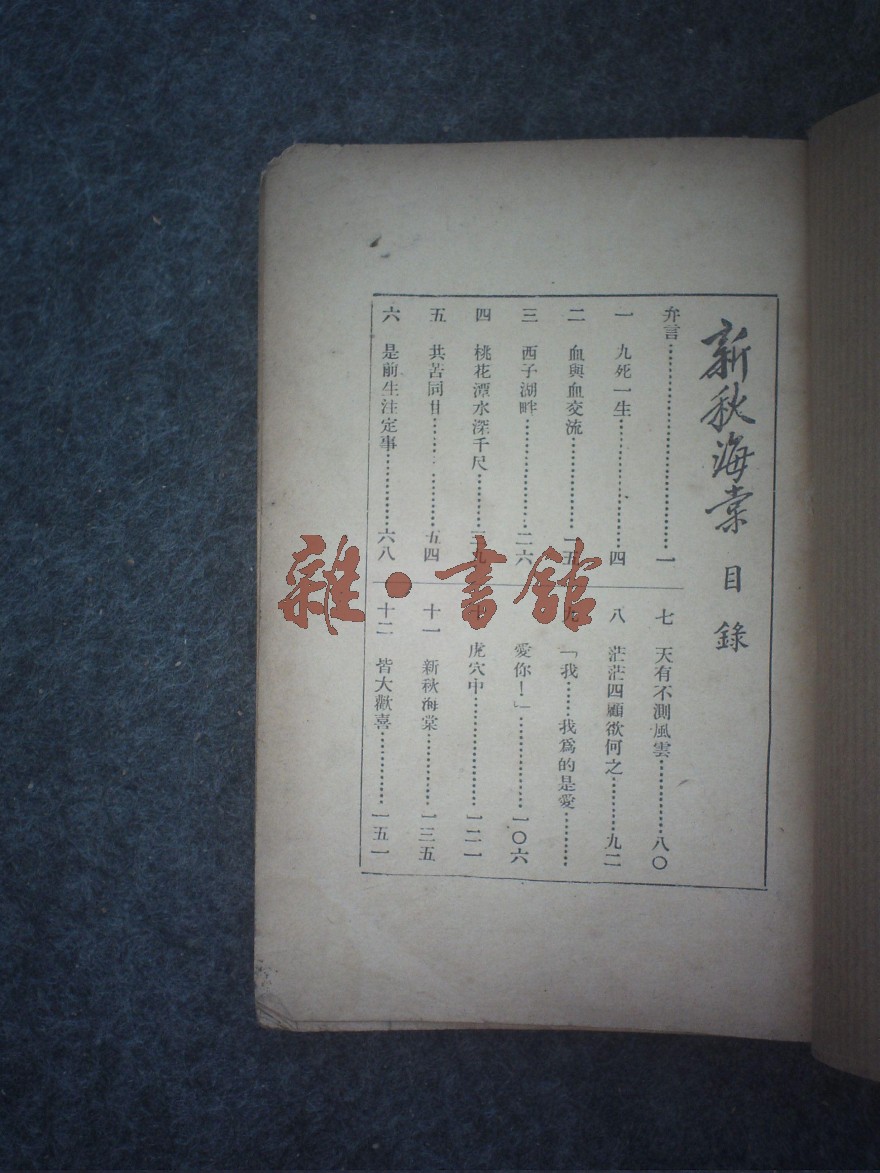 新秋海棠 目錄
弁言……一
一 九死一生……四
二 血與血交流……一五
三 西子湖畔……二六
四 桃花潭水深千尺……三九
五 共苦同甘……五四
六 是前生注定事……六八
七 天有不測風雲……八〇
八 茫茫四顧欲何之……九二
九 「我……我爲的是愛……
愛你！」……一〇六
十 虎穴中……一二一
十一 新秋海棠……一三五
十二 皆大歡喜……一五一
雜·書館